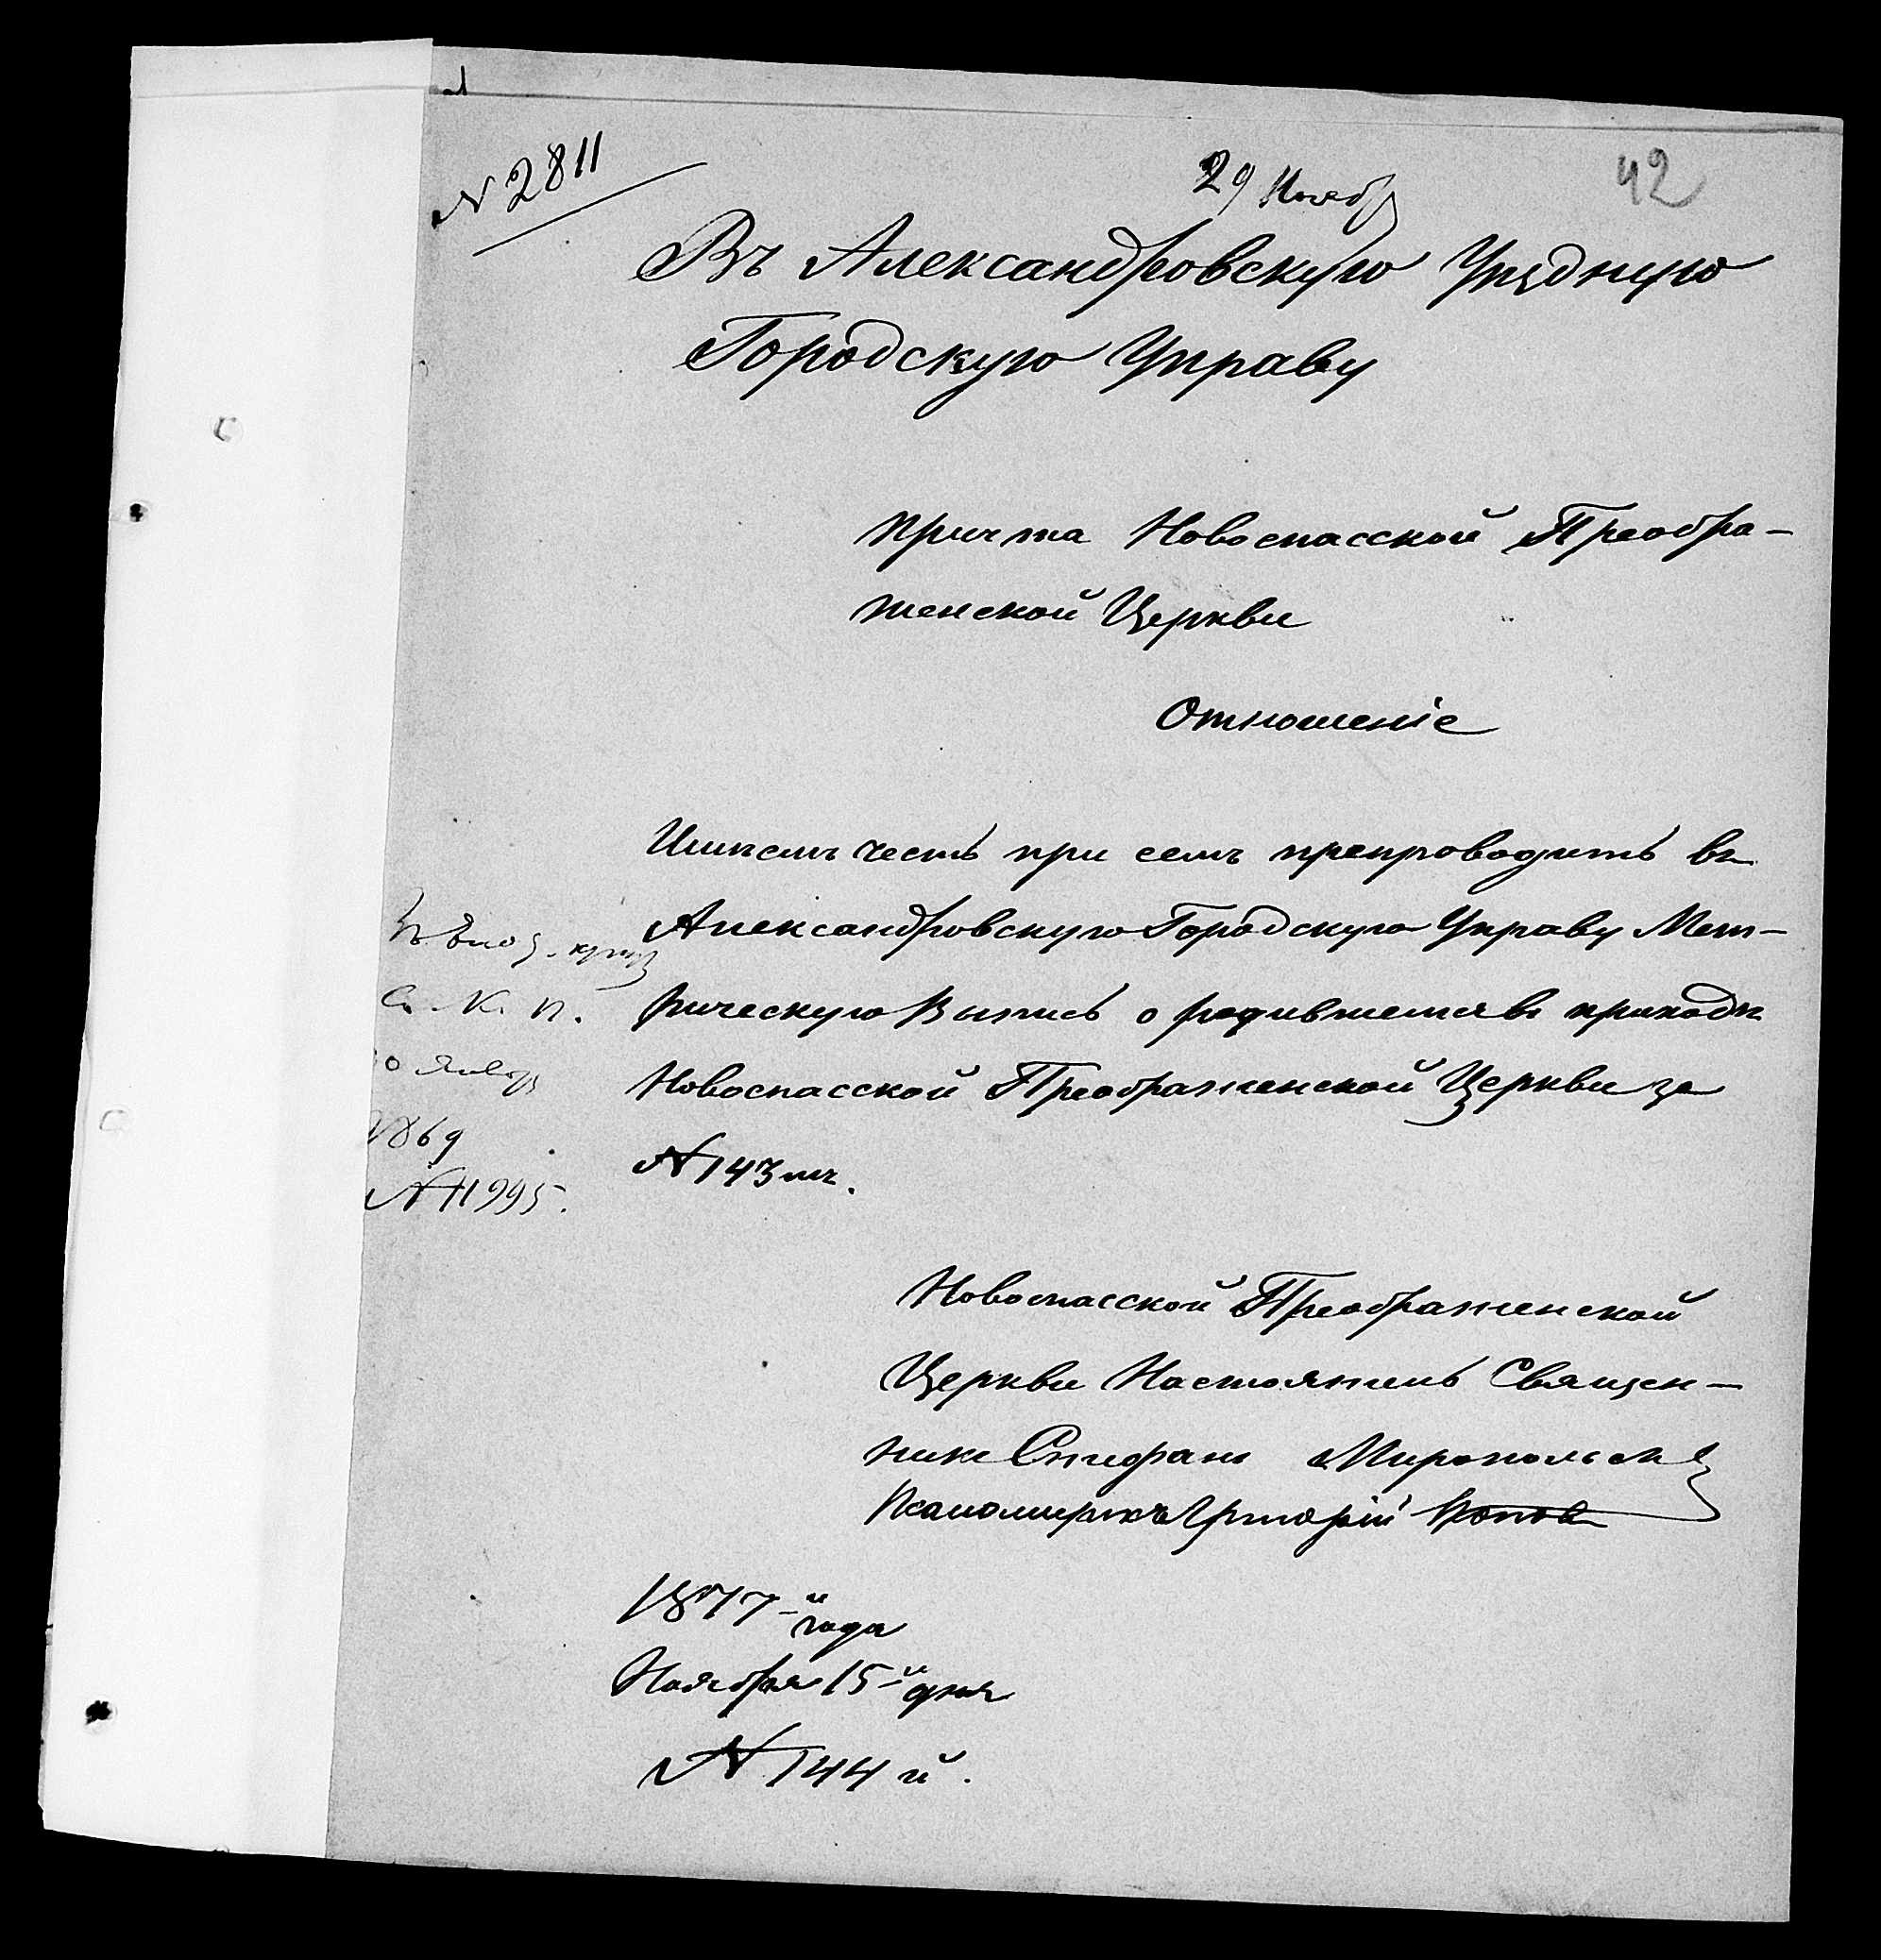 N 2811
29 Ноябр
42
Въ Александровскую Уѣздную
Городскую Управу
Причта Новоспасской Преобра-
женской Церкви
Отношеніе
Имѣемъ честь при семъ препроводить въ
Александровскую Городскую Управу Мет-
рическую Выпись о родившемся въ приходѣ
Новоспасской Преображенской Церкви за
№ 143 мъ.
С. К. П.
Январ
1869
№ 1995.
Новоспасской Преображенской
Церкви Настоятель Священ-
никъ Стефанъ Миропольск
Псаломщикъ Григорій Попов
1877-й года
Ноября 15-й дня
№ 144 й.